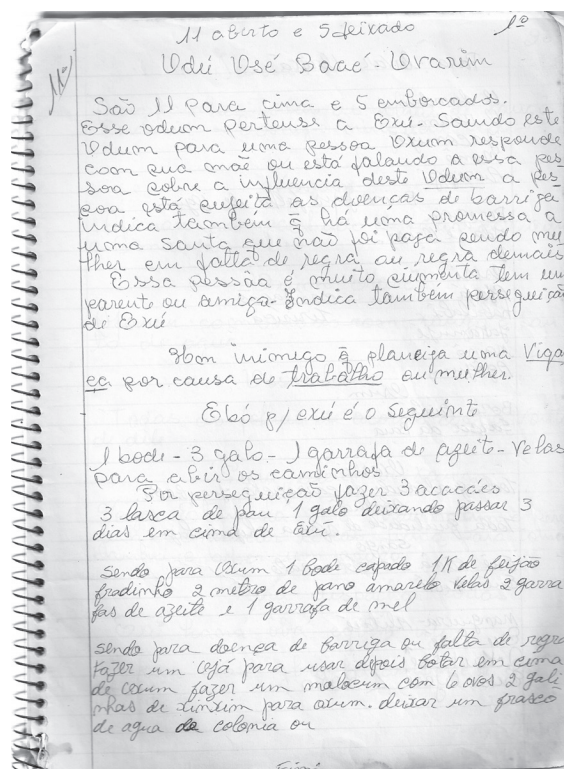 11 aberto e 5 feixado
1º
11º
Odú Osé Bacé - Ovarim
São 11 para cima e 5 emborcados.
Esse odum pertense a Exú. Saindo este
Odum para uma pessoa Oxum responde
com sua mãe ou está falando a essa pes
soa sobre a influencia deste Odum a pes
soa está sujeita as doenças de barriga
indica também q há uma promessa a
uma santa que não foi paga sendo mu
lher em falta de regra ou regra demais
Essa pessôa é muito ciumenta tem um
parente ou amiga. Indica também perseguição
de Exú
Hom inimigo q planeija uma Viga
ça por causa de trabalho ou mulher.
Ebó p/ exú é o seguinte
1 bode - 3 galo - 1 garrafa de azeite - Velas
para abir os caminhos
Por perseguição fazer 3 acaçáes
3 lasca de pau 1 galo deixando passar 3
dias em cima de
sendo para Oxum 1 Bode capado 1K de feijão
fradinho 2 metro de pano amarelo velas 2 garra
fas de azeite e 1 garrafa de mel
sendo para doença de barriga ou falta de regra
fazer um ojá para usar depois botar em cima
de oxum fazer um malocum com 6 ovos 2 gali
nhas de xinxim para oxum. deixar um frasco
de agua de colonia ou